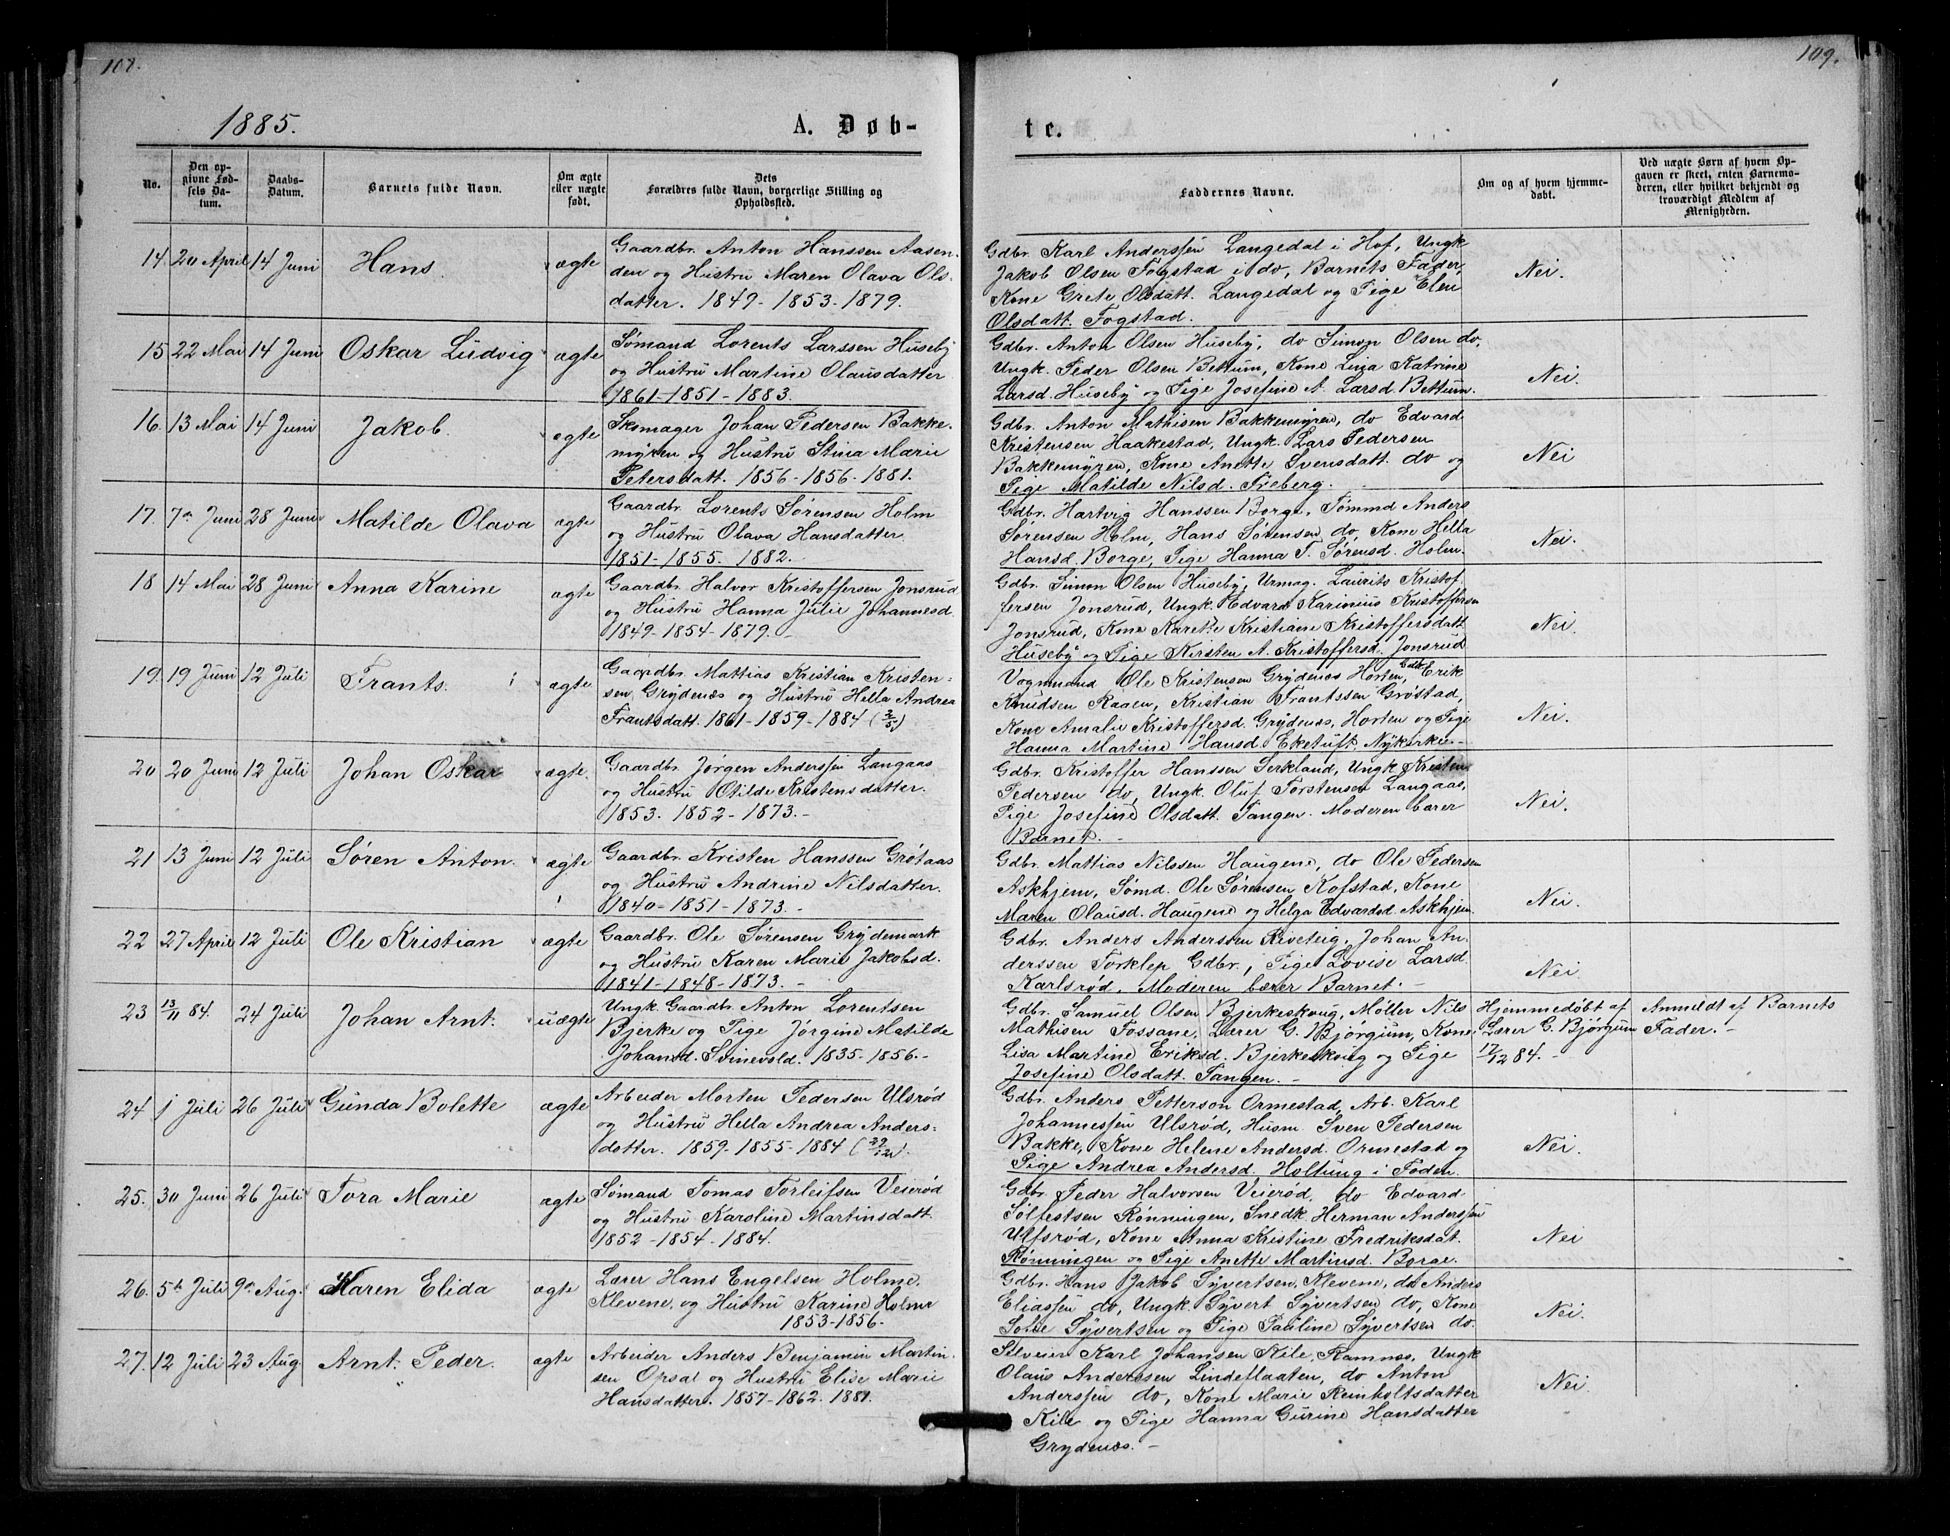 108.
109.
1885.
A. Døb-
te.
No.
Den op-
givne Fød-
sels Da-
tum.
Daabs-
Datum.
Barnets fulde Navn.
Om ægte
eller uægte
født.
Dets
Forældres fulde Navn, borgerlige Stilling og
Opholdssted.
Faddernes Navne.
Om og af hvem hjemme-
døbt.
Ved uægte Børn af hvem Op-
gaven er skeet, enten Barnemo-
deren, eller hvilket bekjendt og
troværdigt Medlem af
Menigheden.
14. 20 April 14 Juni Hans. ægte
Gaardbr. Anton Hanssen Aasen-
den og Hustru Maren Olava Ols-
datter. 1849-1853-1879.
Gdbr. Karl Anderssen Langedal i Hof, Ungk
Jakob Olsen Fogstad i do, Barnets Fader,
Kone Grete Olsdatt. Langedal og Pige Elen
Olsdatt. Fogstad.
Nei.
15 22 Mai 14 Juni Oskar Ludvig ægte
Sømand Lorents Larssen Huseby
og Hustru Martine Olausdatter
1861-1851-1883.
Gdbr. Anton Olsen Huseby, do Simon Olsen do,
Ungk. Peder Olsen Bettum, Kone Lina Katrine
Larsd. Huseby og Pige Josefine A. Larsd Bettum.
Nei.
16. 13 Mai 14 Juni Jakob. ægte
Skomager Johan Pedersen Bakke-
myren og Hustru Stina Marie
Petersdatt. 1856-1856-1881.
Gdbr. Anton Mathisen Bakkemyren, do Edvard
Kristensen Haakestad, Ungk. Lars Pedersen
Bakkemyren, Kone Anette Svensdatt. do og
Pige Matilde Nilsd. Freberg.
Nei
17. 7de Juni 28 Juni Matilde Olava ægte
Gaardbr. Lorents Sørensen Holm
og Hustru Olava Hansdatter
1851-1855. 1882.
Gdbr. Hartvig Hanssen Borge, Tømmd Anders
Sørensen Holm, Hans Sørensen do, Kone Hella
Hansd. Borge, Pige Hanna T. Sørensd. Holm.
Nei.
18 14 Mai 28 Juni Anna Karine ægte
Gaardbr. Halvor Kristoffersen Jonsrud
og Hustru Hanna Julie Johannesd.
1849-1854-1879.-
Gdbr. Simon Olsen Huseby, Urmag. Laurits Kristof-
fersen Jonsrud, Ungk. Edvard Karinius Kristoffersen
Jonsrud, Kone Karette Kristiane Kristoffersdatt.
Huseby og Pige Kirsten A. Kristoffersd. Jonsrud
Nei.
19. 19 Juni 12 Juli Frants. ægte
Gaardbr. Mattias Kristian Kristen-
sen Grydenæs og Hustru Hella Andrea
Frantsdatt. 1861-1859-1884 (2/5)
Vognmand Ole Kristensen Grydenæs Horten, Gdbr. Erik
Knudsen Raaen, Kristian Frantssen Grøstad,
Kone Amalie Kristoffersd. Grydenæs, Horten og Pige
Hanna Martine Hansd. Eketuft, Nykirke.-
Nei.
20 20 Juni 12 Juli Johan Oskar ægte.
Gaardbr. Jørgen Anderssen Langaas
og Hustru Otilde Kristensdatter.
1853. 1852-1873.-
Gdbr. Kristoffer Hanssen Serkland, Ungk. Kristen
Pedersen do, Ungk. Oluf Torstensen Langaas,
Pige Josefine Olsdatt. Tangen. Moderen bærer
Barnet.-
Nei.
21 13 Juni 12 Juli Søren Anton. ægte
Gaardbr. Kristen Hanssen Grøtaas
og Hustru Andrine Nilsdatter.
1840-1851-1873.-
Gdbr. Mattias Nilssen Haugene, do Ole Pedersen
Askhjem, Sømd. Ole Sørensen Kofstad, Kone
Maren Olausd. Haugene og Helga Edvardsd Askhjem.
Nei.
22 27 April 12 Juli Ole Kristian ægte
Gaardbr. Ole Sørensen Grydemark
og Hustru Karen Marie Jakobsd.
1841-1848-1873.-
Gdbr. Anders Anderssen Riveteig, Johan An-
derssen Torklep Gdbr., Pige Lovise Larsd.
Karlsrød, Moderen bærer Barnet.-
Nei
23 13/11 84. 24 Juli Johan Arnt. uægte
Ungk. Gaardbr. Anton Lorentsen
Bjerke og Pige Jørgine Matilde
Johansd. Svinevold. 1835-1856.-
Gdbr. Samuel Olsen Bjerkeskoug, Møller Nils
Mathisen Fossane, Lærer G. Bjørgum, Kone
Lisa Martine Eriksd. Bjerkeskoug og Pige
Josefine Olsdatt. Tangen.-
Hjemmedøbt af
Lærer G. Bjørgum
17/12 84.-
Anmeldt af Barnets
Fader.-
24 1 Juli 26 Juli Gunda Bolette ægte
Arbeider Morten Pedersen Ulsrød
og Hustru Hella Andrea Anders-
datter. 1859-1855-1884 (29/12).
Gdbr. Anders Petterson Ormestad, Arb. Karl
Johannessen Ulsrød, Husm. Sven Pedersen
Bakke, Kone Helene Andersd. Ormestad og
Pige Andrea Andersd. Holtung i Foden.
Nei.
25. 30 Juni 26 Juli Tora Marie ægte
Sømand Tomas Torleifsen Veierød
og Hustru Karoline Martinsdatt.
1852-1854-1884.
Gdbr. Peder Halvorsen Veierød, do Edvard
Sølfestsen Rønningen, Snedk. Herman Anderssen
Ulfsrød, Kone Anna Kristine Fredriksdat.
Rønningen og Pige Anette Martinsd. Borge.
Nei
26. 5te Juli 9de Aug. Karen Elida ægte
Lærer Hans Engelsen Holme,
Klevene, og Hustru Karine Holme
1853-1856-
Gdbr. Hans Jakob Syvertsen, Klevene, do Anders
Eliassen do, Ungk. Syvert Syvertsen do, Kone
Sofie Syvertsen og Pige Pauline Syvertsen do.
Nei.
27. 12 Juli 23 Aug. Arnt Peder. ægte
Arbeider Anders Benjamin Martin-
sen Opsal og Hustru Elise Marie
Hansdatter. 1857-1862. 1881.
Selveier Karl Johansen Kile, Ramnæs, Ungk
Olaus Anderssen Lindeflaaten, do Anton
Anderssen do, Kone Marie Reinholtsdatter
Kile og Pige Hanna Gurine Hansdatter
Grydenæs.-
Nei